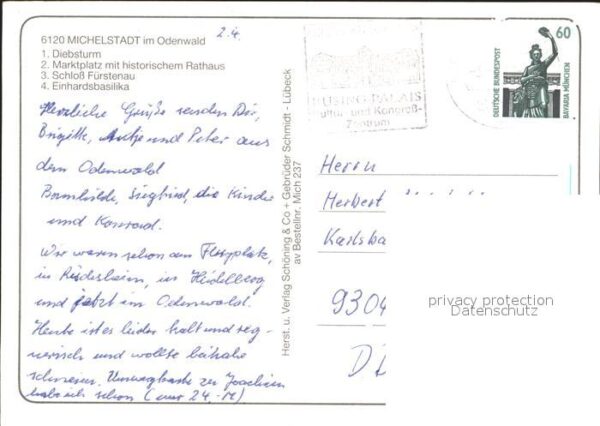 6120 MICHELSTADT im Odenwald
2.4.
1. Diebsturm
2. Marktplatz mit historischem Rathaus
3. Schloß Fürstenau
4. Einhardsbasilika
Herzliche Grüße senden Dir,
Brigitte, Antje und Peter aus
dem Odenwald
Siegfried, die Kinder
und Konrad.
Wir waren schon am Flugplatz,
in Rüdesheim, in Heidelberg
und jetzt im Odenwald.
Heute ist es leider kalt und reg-
nerisch und wollte beinahe
schneien. zu Joachim
habe ich schon (nur 24.-M)
Herst. u. Verlag Schöning & Co + Gebrüder Schmidt - Lübeck
av Bestellnr. Mich 237
BÜSING PALAIS
Kultur- und Kongreß-
Zentrum
60
DEUTSCHE BUNDESPOST
BAVARIA MÜNCHEN
Herrn
Herbert
Karlsba
9304
privacy protection
Datenschutz